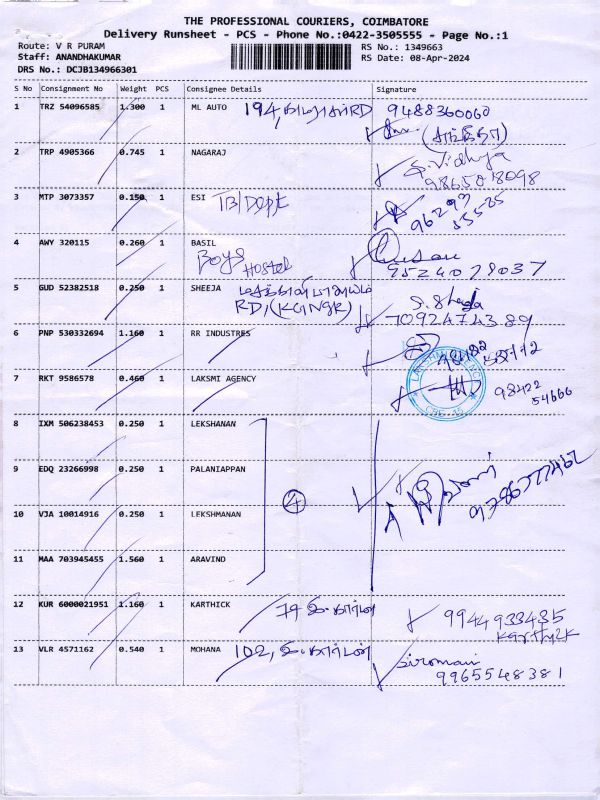 THE PROFESSIONAL COURIERS, COIMBATORE
Delivery Runsheet - PCS - Phone No.:0422-3505555 - Page No.:1
Route: V R PURAM RS No.: 1349663
Staff: ANANDHAKUMAR RS Date: 08-Apr-2024
DRS No.: DCJB134966301
S No Consignment No Weight PCS Consignee Details Signature
1 TRZ 54096585 1.300 1 ML AUTO 194, RD 9488360060
2 TRP 4905366 0.745 1 NAGARAJ S. Vidhya
9865018098
3 MTP 3073357 0.150 1 ESI TB/Dept 96293
55525
4 AWY 320115 0.260 1 BASIL
Boys Hostel 9524079037
5 GUD 52382518 0.250 1 SHEEJA
RD, (KGNGR) 7092474389
6 PNP 530332694 1.160 1 RR INDUSTRES
7 RKT 9586578 0.460 1 LAKSMI AGENCY 98422
54666
8 IXM 506238453 0.250 1 LEKSHANAN
9 EDQ 23266998 0.250 1 PALANIAPPAN
4
10 VJA 10014916 0.250 1 LEKSHMANAN
11 MAA 703945455 1.560 1 ARAVIND
12 KUR 6000021951 1.160 1 KARTHICK 9944933435
Karthick
13 VLR 4571162 0.540 1 MOHANA 102, siromani
9965548381